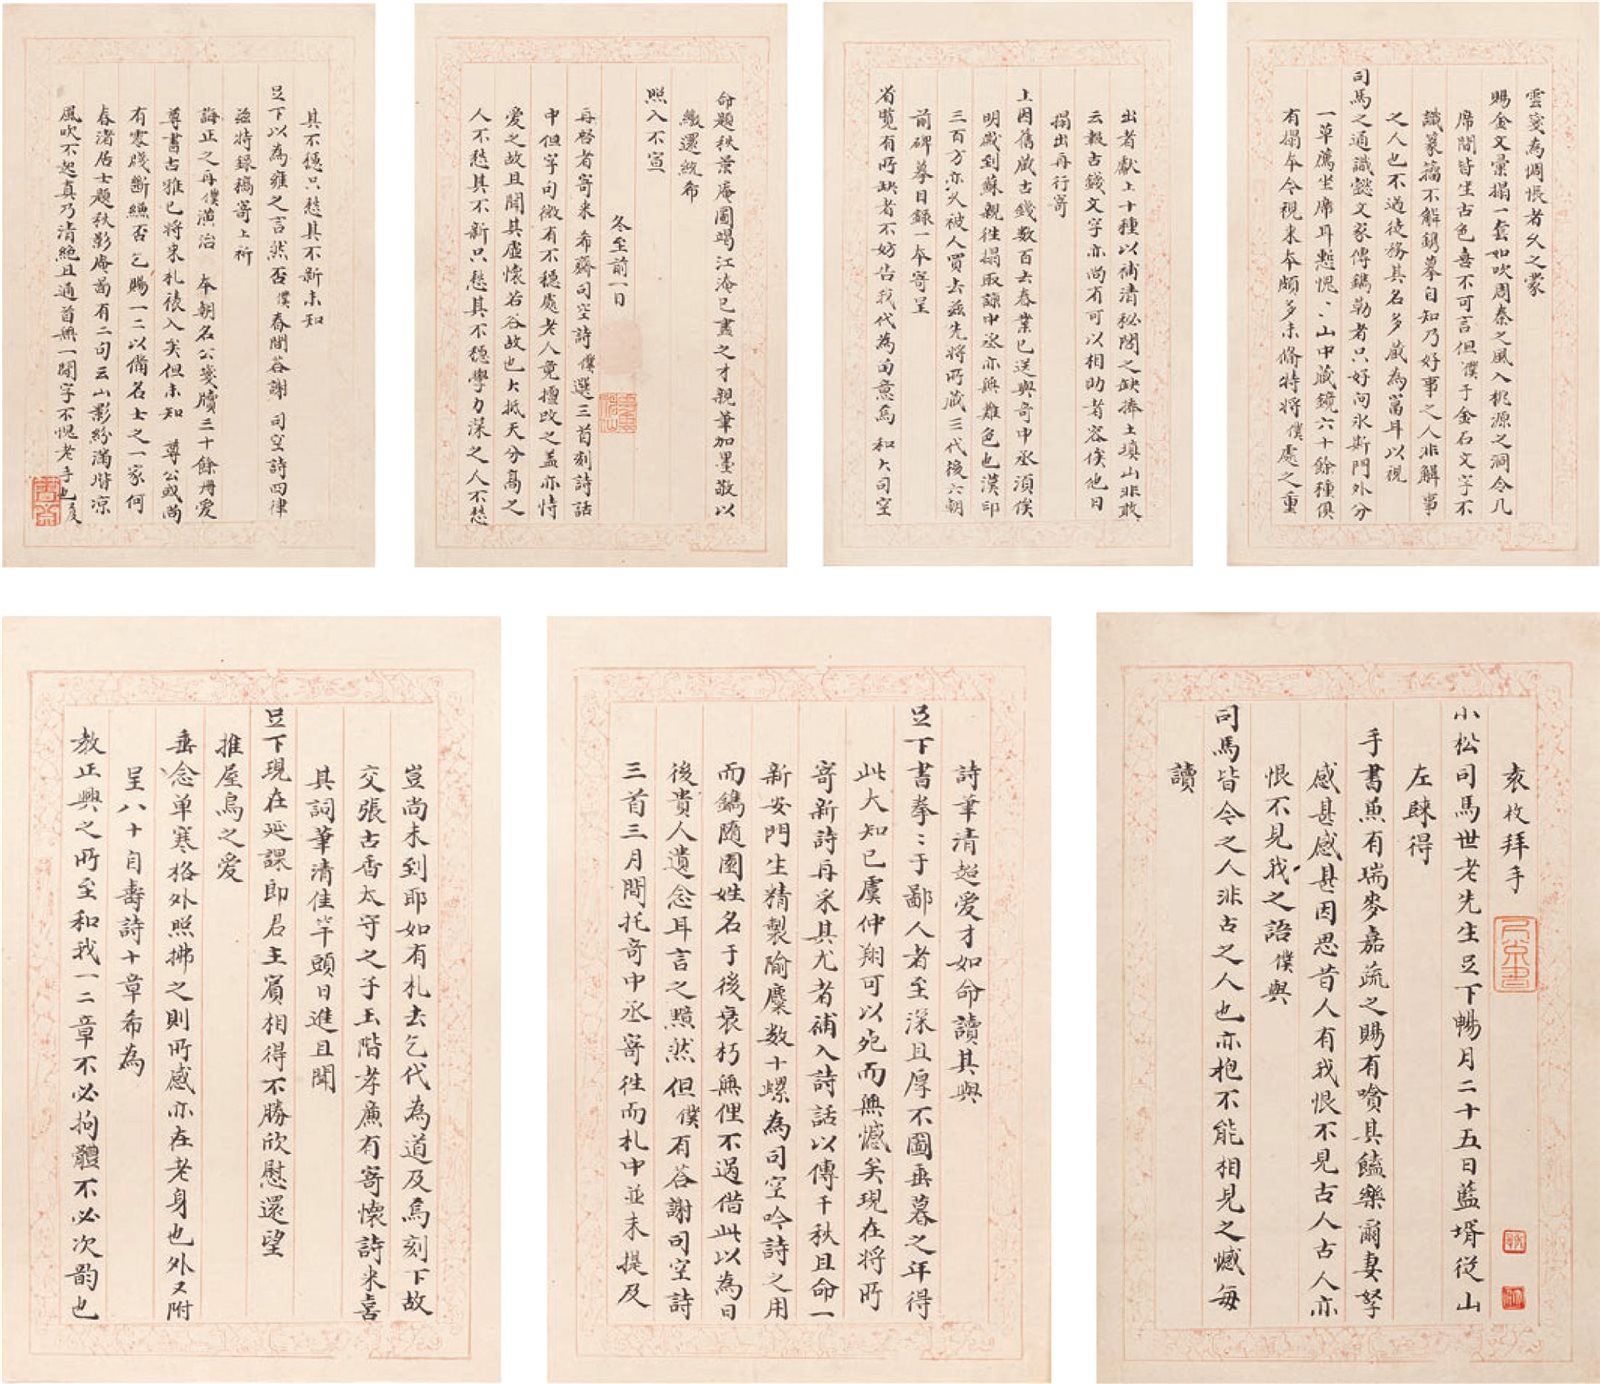 雲箋為惆悵者久之蒙
賜金文彙搨一套如吹周秦之風入桃源之洞令几
席間皆生古色喜不可言但僕于金石文字不
識篆籀不解鐫摹自知乃好事之人非解事
之人也不過徒務其名多藏為富耳以視
司馬之通識懿文家傳鐫勒者只好向冰斯門外分
一草薦坐席耳慙愧〻山中藏鏡六十餘種俱
有搨本今視來本頗多未備特將僕處之重
出者獻上十種以補清秘閣之缺捧土填山非敢
云報古錢文字亦尚有可以相助者容俟他日
搨出再行寄
上因舊藏古錢數百去春業已送與奇中丞須俟
明歲到蘇親往搨取諒中丞亦無難色也漢印
三百方亦久被人買去茲先將所藏三代後六朝
前碑摹目錄一本寄呈
省覽有所缺者不妨告我代為留意焉和大司空
命題秋景庵圖竭江淹已盡之才親筆加墨敬以
繳還統希
照入不宣
冬至前一日
再啓者寄來希齋司空詩僕選三首刻詩話
中但字句微有不穩處老人竟擅改之盖亦恃
愛之故且聞其虛懷若谷故也大抵天分高之
人不愁其不新只愁其不穩學力深之人不愁
其不穩只愁其不新未知
足下以為雍之言然否僕春間荅謝司空詩四律
茲特錄稿寄上祈
誨正之再僕潢治本朝名公箋牘三十餘冊愛
尊書古雅已將來札裱入矣但未知尊公或尚
有零牋斷縑否乞賜一二以備名士之一家何
春渚居士題秋影庵菊有二句云山影紛滿堦凉
風吹不起真乃清絶且通首無一閒字不愧老手也又及
袁枚拜手
小松司馬世老先生足下暢月二十五日藍壻從山
左歸得
手書兼有瑞麥嘉蔬之賜有噲其饁樂爾妻孥
感甚感甚因思昔人有我恨不見古人古人亦
恨不見我之語僕與
司馬皆今之人非古之人也亦抱不能相見之憾每
讀
詩筆清超愛才如命讀其與
足下書拳〻于鄙人者至深且厚不圖垂暮之年得
此大知己虞仲翔可以死而無憾矣現在將所
寄新詩再采其尤者補入詩話以傳千秋且命一
新安門生精製隃麋數十螺為司空吟詩之用
而鐫隨園姓名于後衰朽無俚不過借此以為日
後貴人遺念耳言之黯然但僕有荅謝司空詩
三首三月間托奇中丞寄往而札中並未提及
豈尚未到耶如有札去乞代為道及焉刻下故
交張古香太守之子玉階孝廉有寄懷詩來喜
其詞筆清佳竿頭日進且聞
足下現在延課郎君主賓相得不勝欣慰還望
推屋烏之愛
垂念單寒格外照拂之則所感亦在老身也外又附
呈八十自壽詩十章希為
教正興之所至和我一二章不必拘體不必次韵也